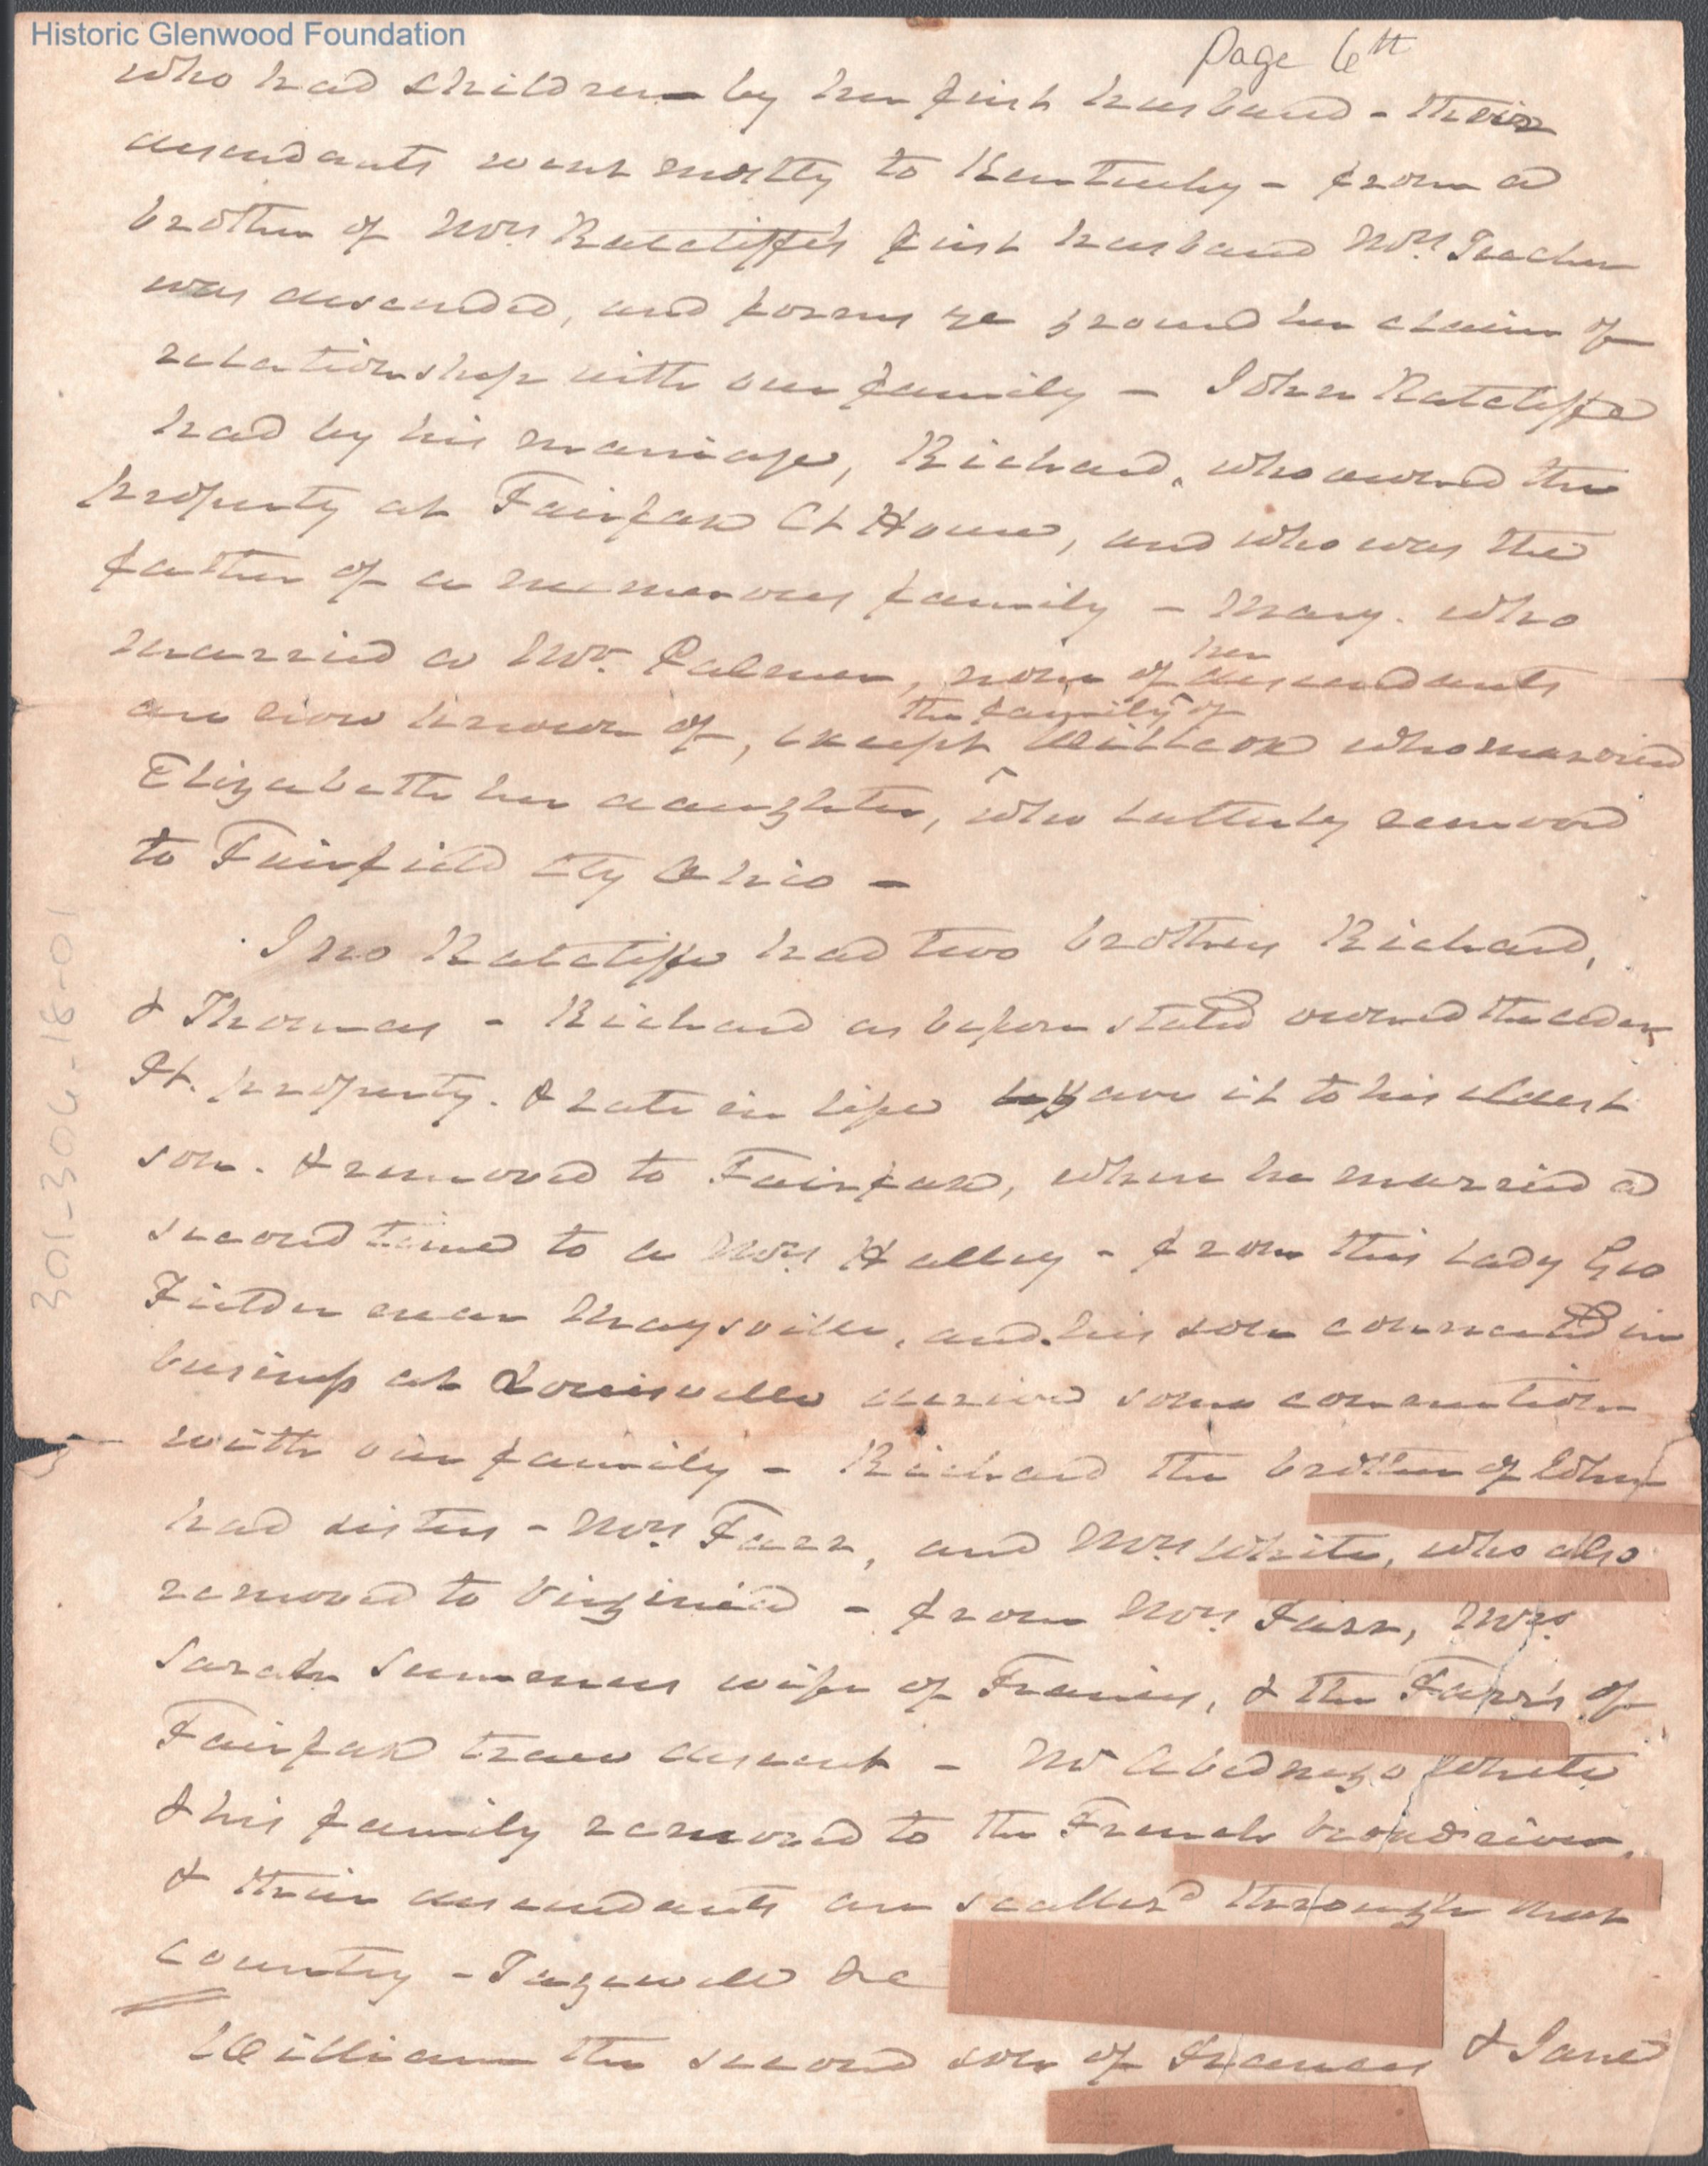 Historic Glenwood Foundation
Page 6th
who had children by her first husband - their
descendants went mostly to Kentucky - from a
brother of Mrs Ratcliffe's first husband Mrs.
was descended, and forms ye ground her claim of
relationship with our family - John Ratcliffe
had by his marriage, Richard, who owned the
property at Fairfax Ct House, and who was the
father of a numerous family - Mary. who
married a Mr. Palmer, none of her descendants
are now known of, except the family of Willcox who married
Elizabeth her daughter, who latterly removed
to Fairfield Cty Ohio -
Jno Ratcliffe had two brothers Richard,
& Thomas - Richard as before stated owned the
Pt. property. & late in life gave it to his eldest
son. & removed to Fairfax, where he married a
second time to a Mrs Halley - from this Lady Geo
Fielder near Maysville, and his son connected in
business at Louisville derived some connection
with our family - Richard the brother of John
had sisters - Mrs Farr, and Mrs White, who also
removed to Virginia - from Mrs Farr, Mrs
Sarah Summers wife of Francis, & the Farr's of
Fairfax trace descent - Mr Abednego White
& his family removed to the French broad river,
& their descendants are scatterd through that
country - Tazewell &c
William the second son of Frances & Jane
301-306-18-01